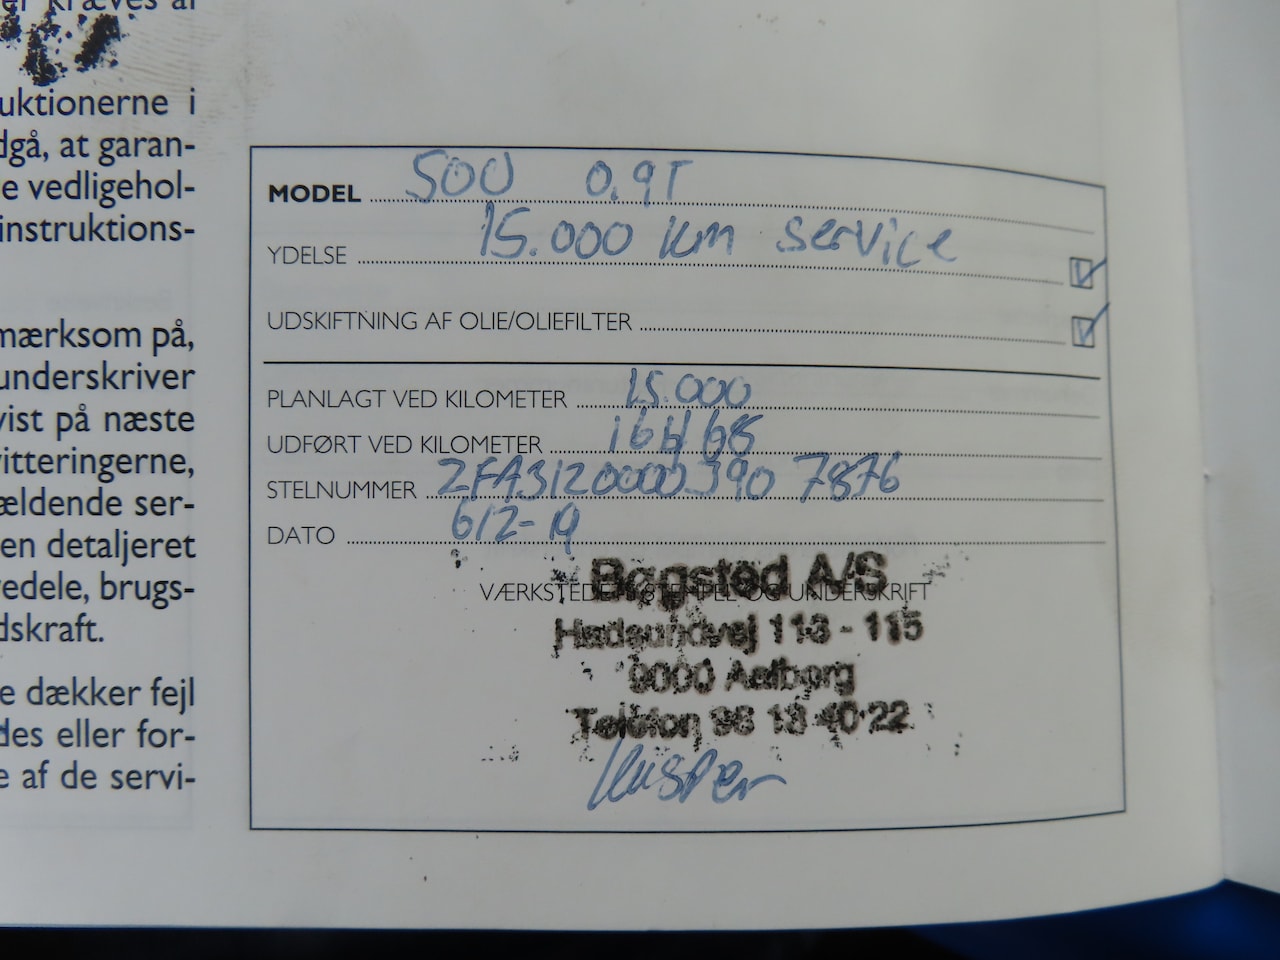 uktionerne i
dgå, at garan-
e vedligehol-
instruktions-
mærksom på,
underskriver
vist på næste
itteringerne,
ældende ser-
en detaljeret
edele, brugs-
dskraft.
e dækker fejl
des eller for-
e af de servi-
MODEL 500 0.9T
YDELSE 15.000 km service
UDSKIFTNING AF OLIE/OLIEFILTER
PLANLAGT VED KILOMETER 15.000
UDFØRT VED KILOMETER
STELNUMMER ZFA3120000J907876
DATO 6/2-19
VÆRKSTEDETS STEMPEL OG UNDERSKRIFT
Bøgsted A/S
Hadsundvej 113 - 115
9000 Aalborg
Telefon 98 13 40 22